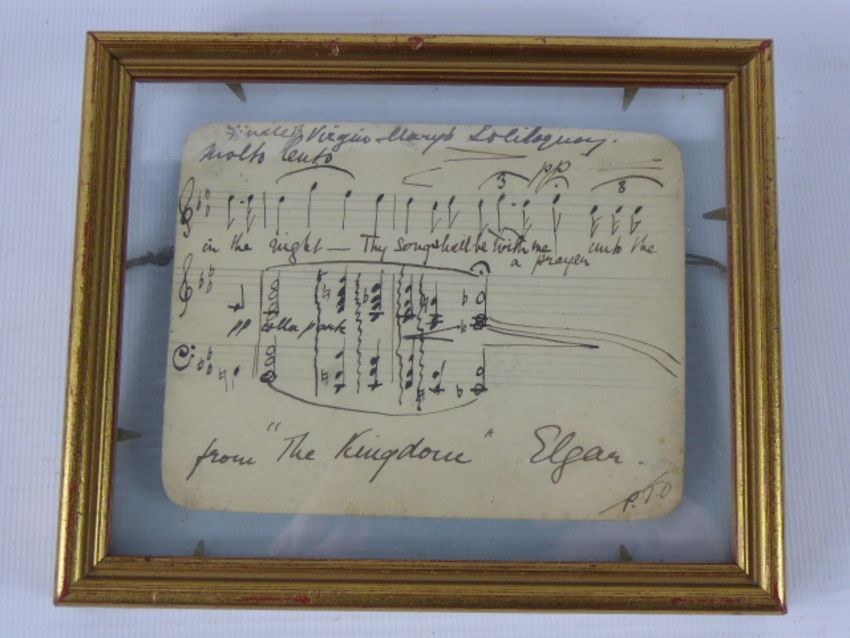 Finale of Virgin Mary's Soliloquy.
Molto lento
pp
3 3
in the night — Thy song shall be with me and the
a prayer
pp colla parte
from "The Kingdom" Elgar.
P.T.O